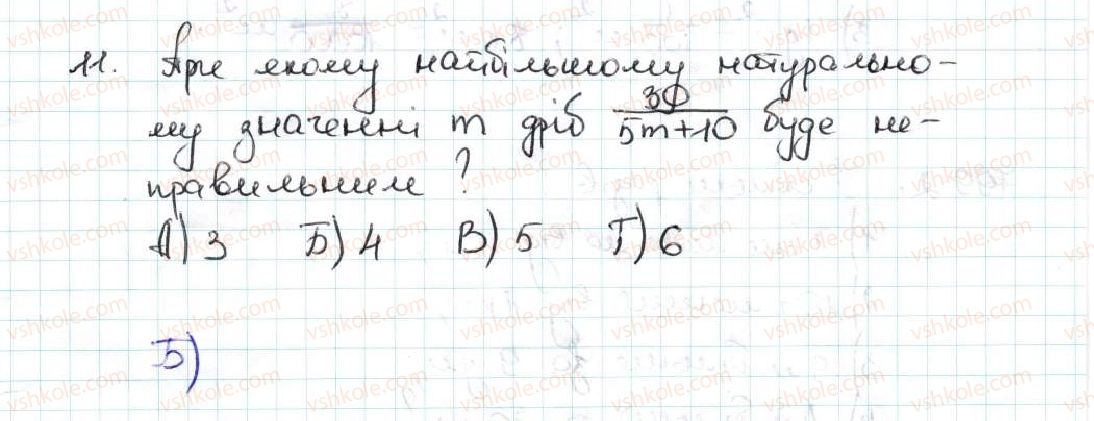 11. При якому найбільшому натурально-
му значенні m дріб 30/(5m+10) буде не-
правильним?
А) 3 Б) 4 В) 5 Г) 6
Б)